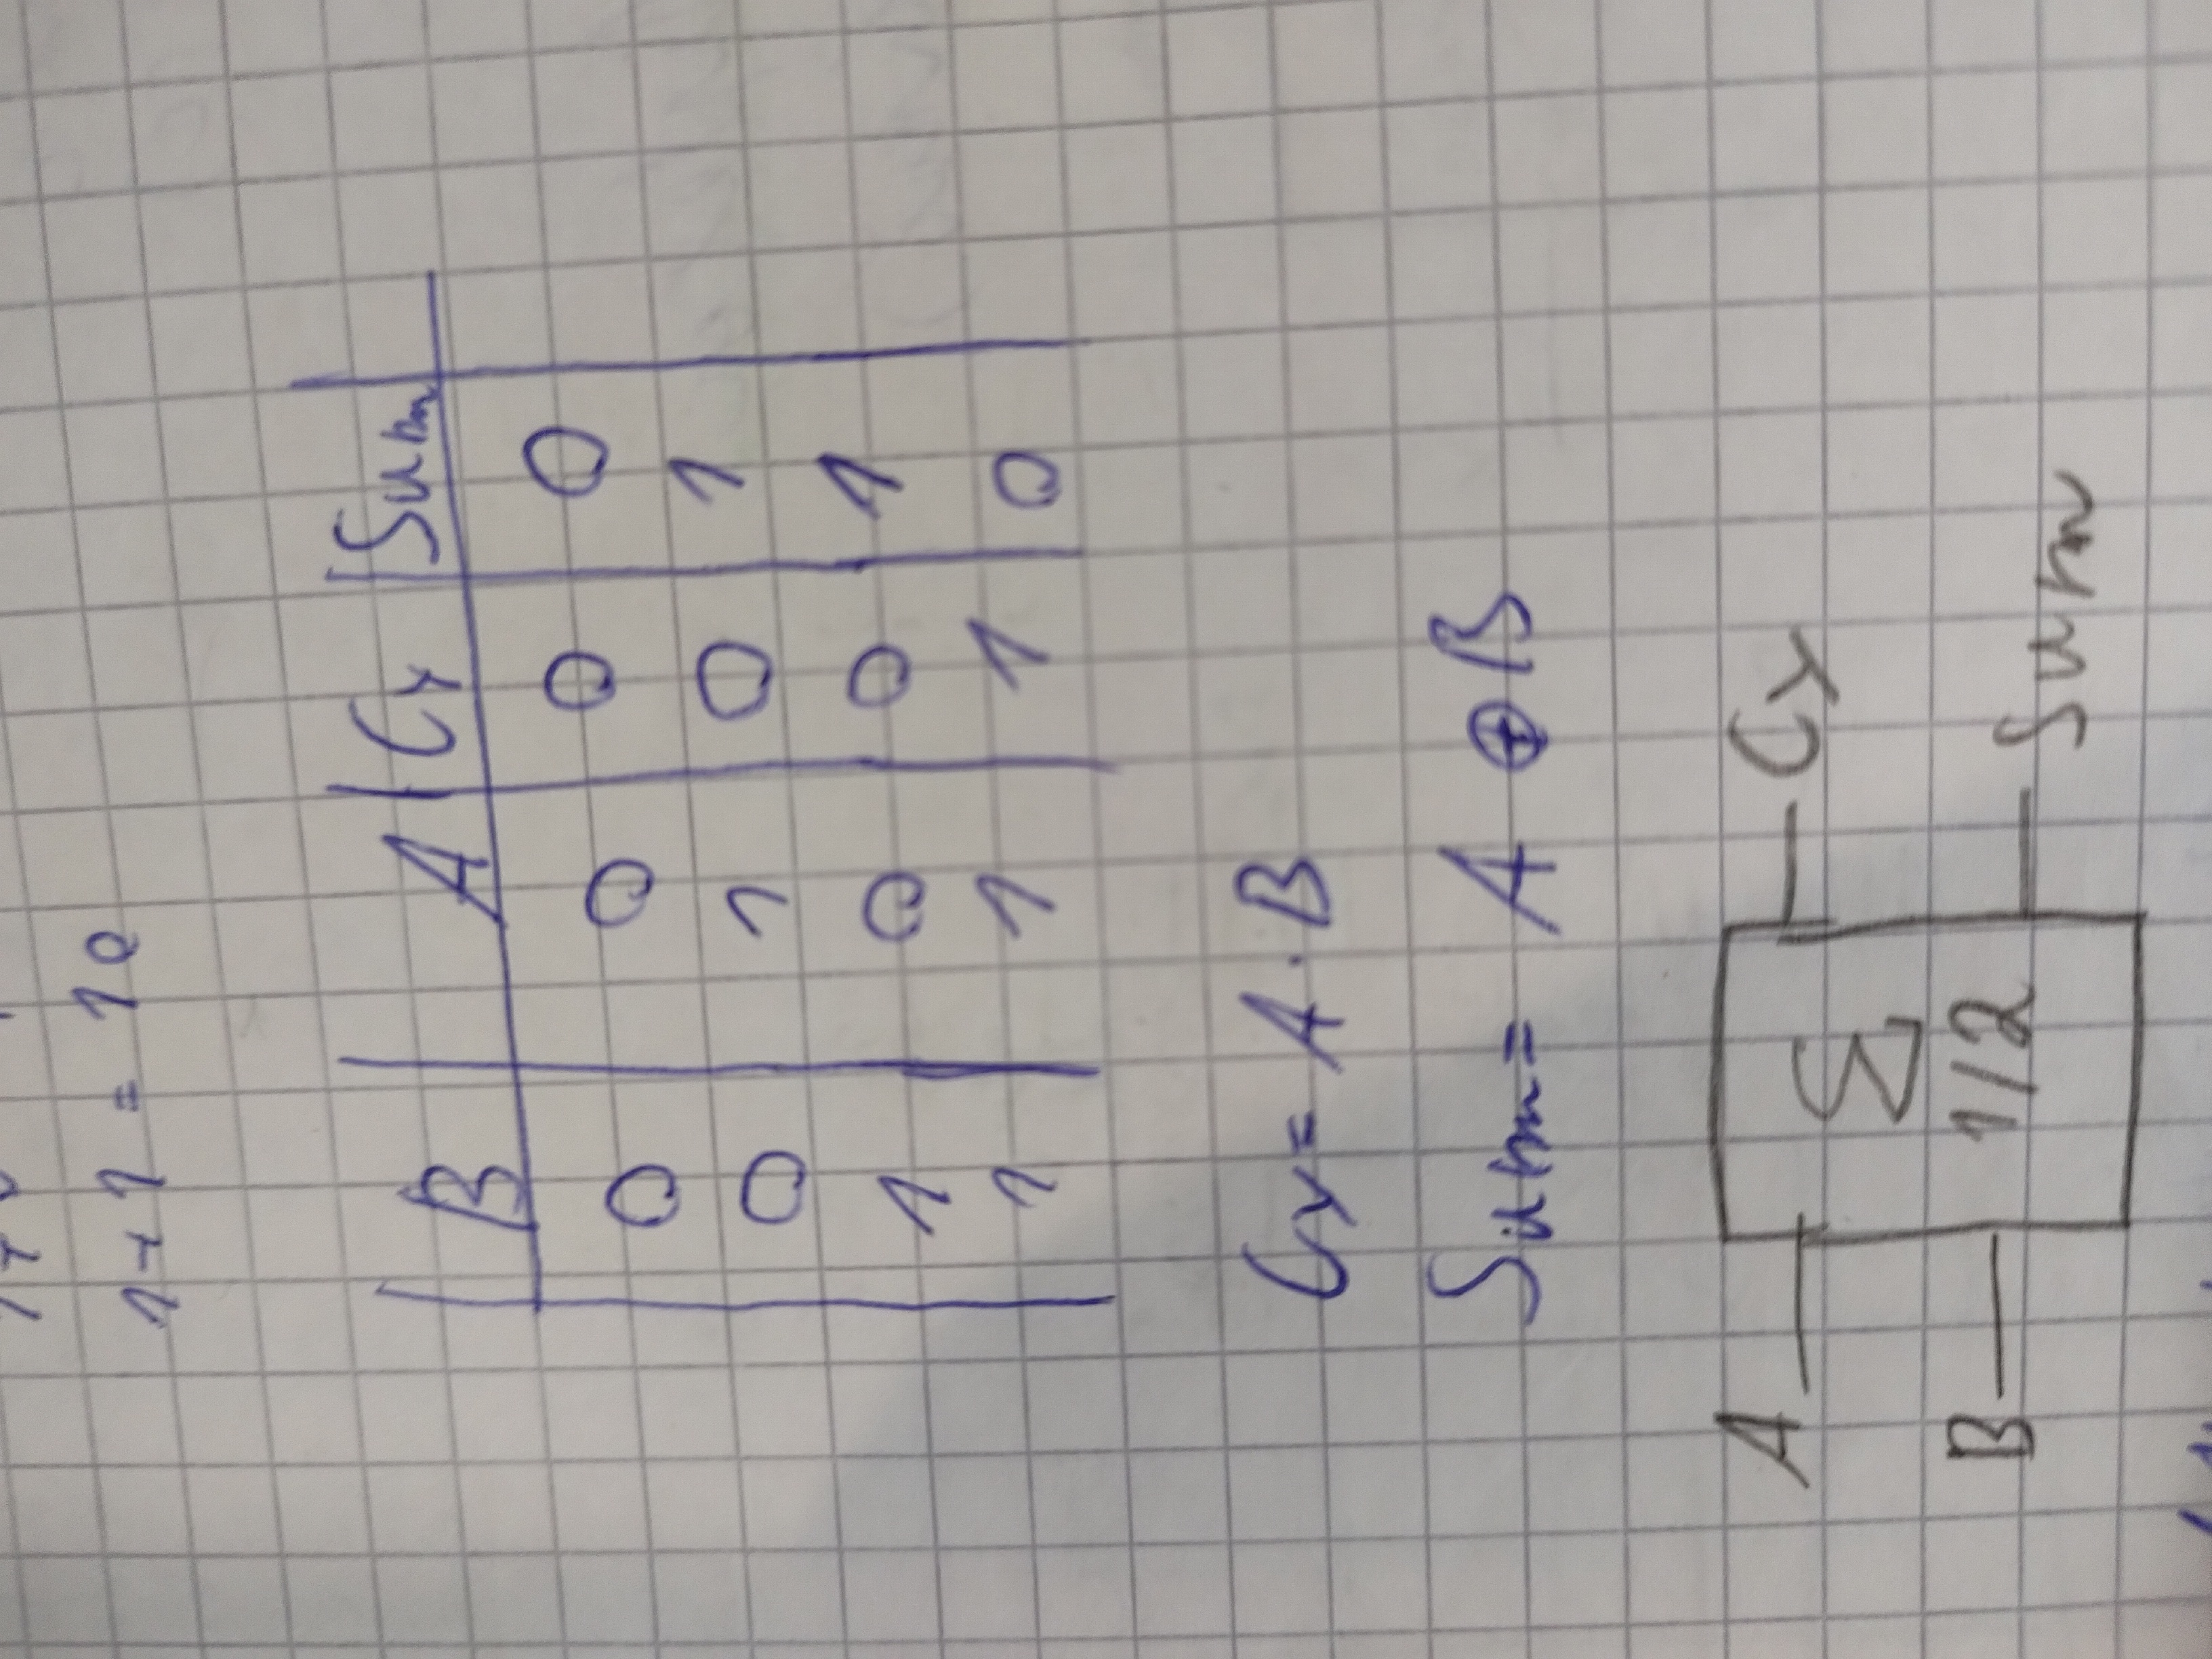 1+1 = 10
B A Cy Sum
0 0 0 0
0 1 0 1
1 0 0 1
1 1 1 0
Cy= A · B
Sum= A ⊕ B
A Cy
Σ
B 1/2
Sum